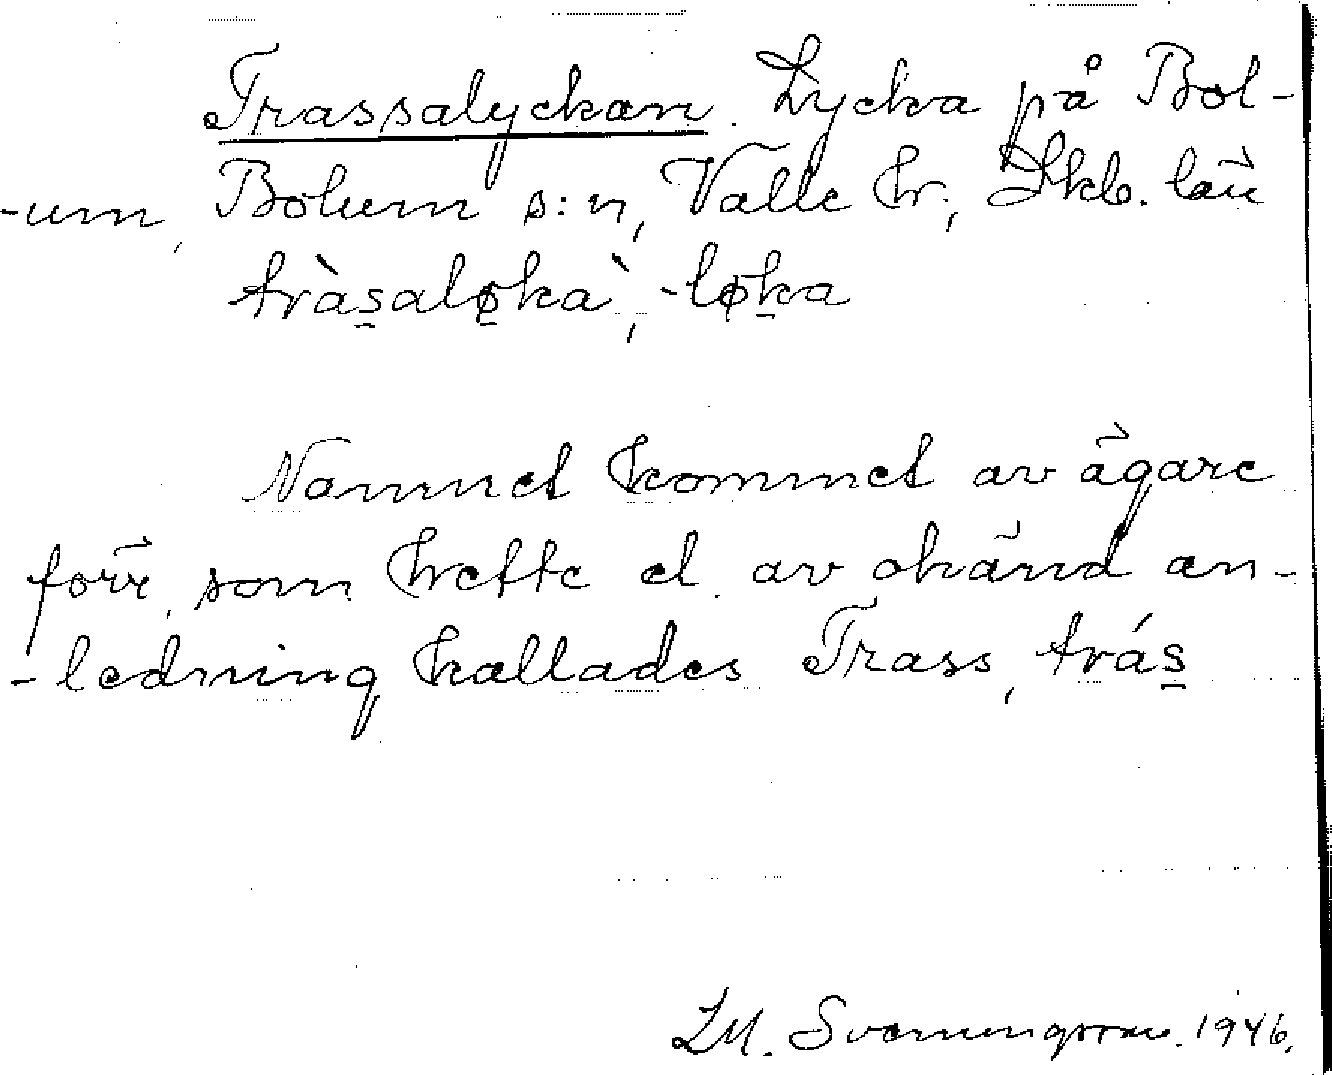 Trassalyckan. Lycka på Bol-
-um, Bolum s:n, Valle hr, Skb. län
tràs̲alø̲kà, -løk̲a
Namnet kommet av ägare
förr, som hette el. av okänd an-
-ledning kallades Trass, trás̲
LM. Svanungsson. 1946.